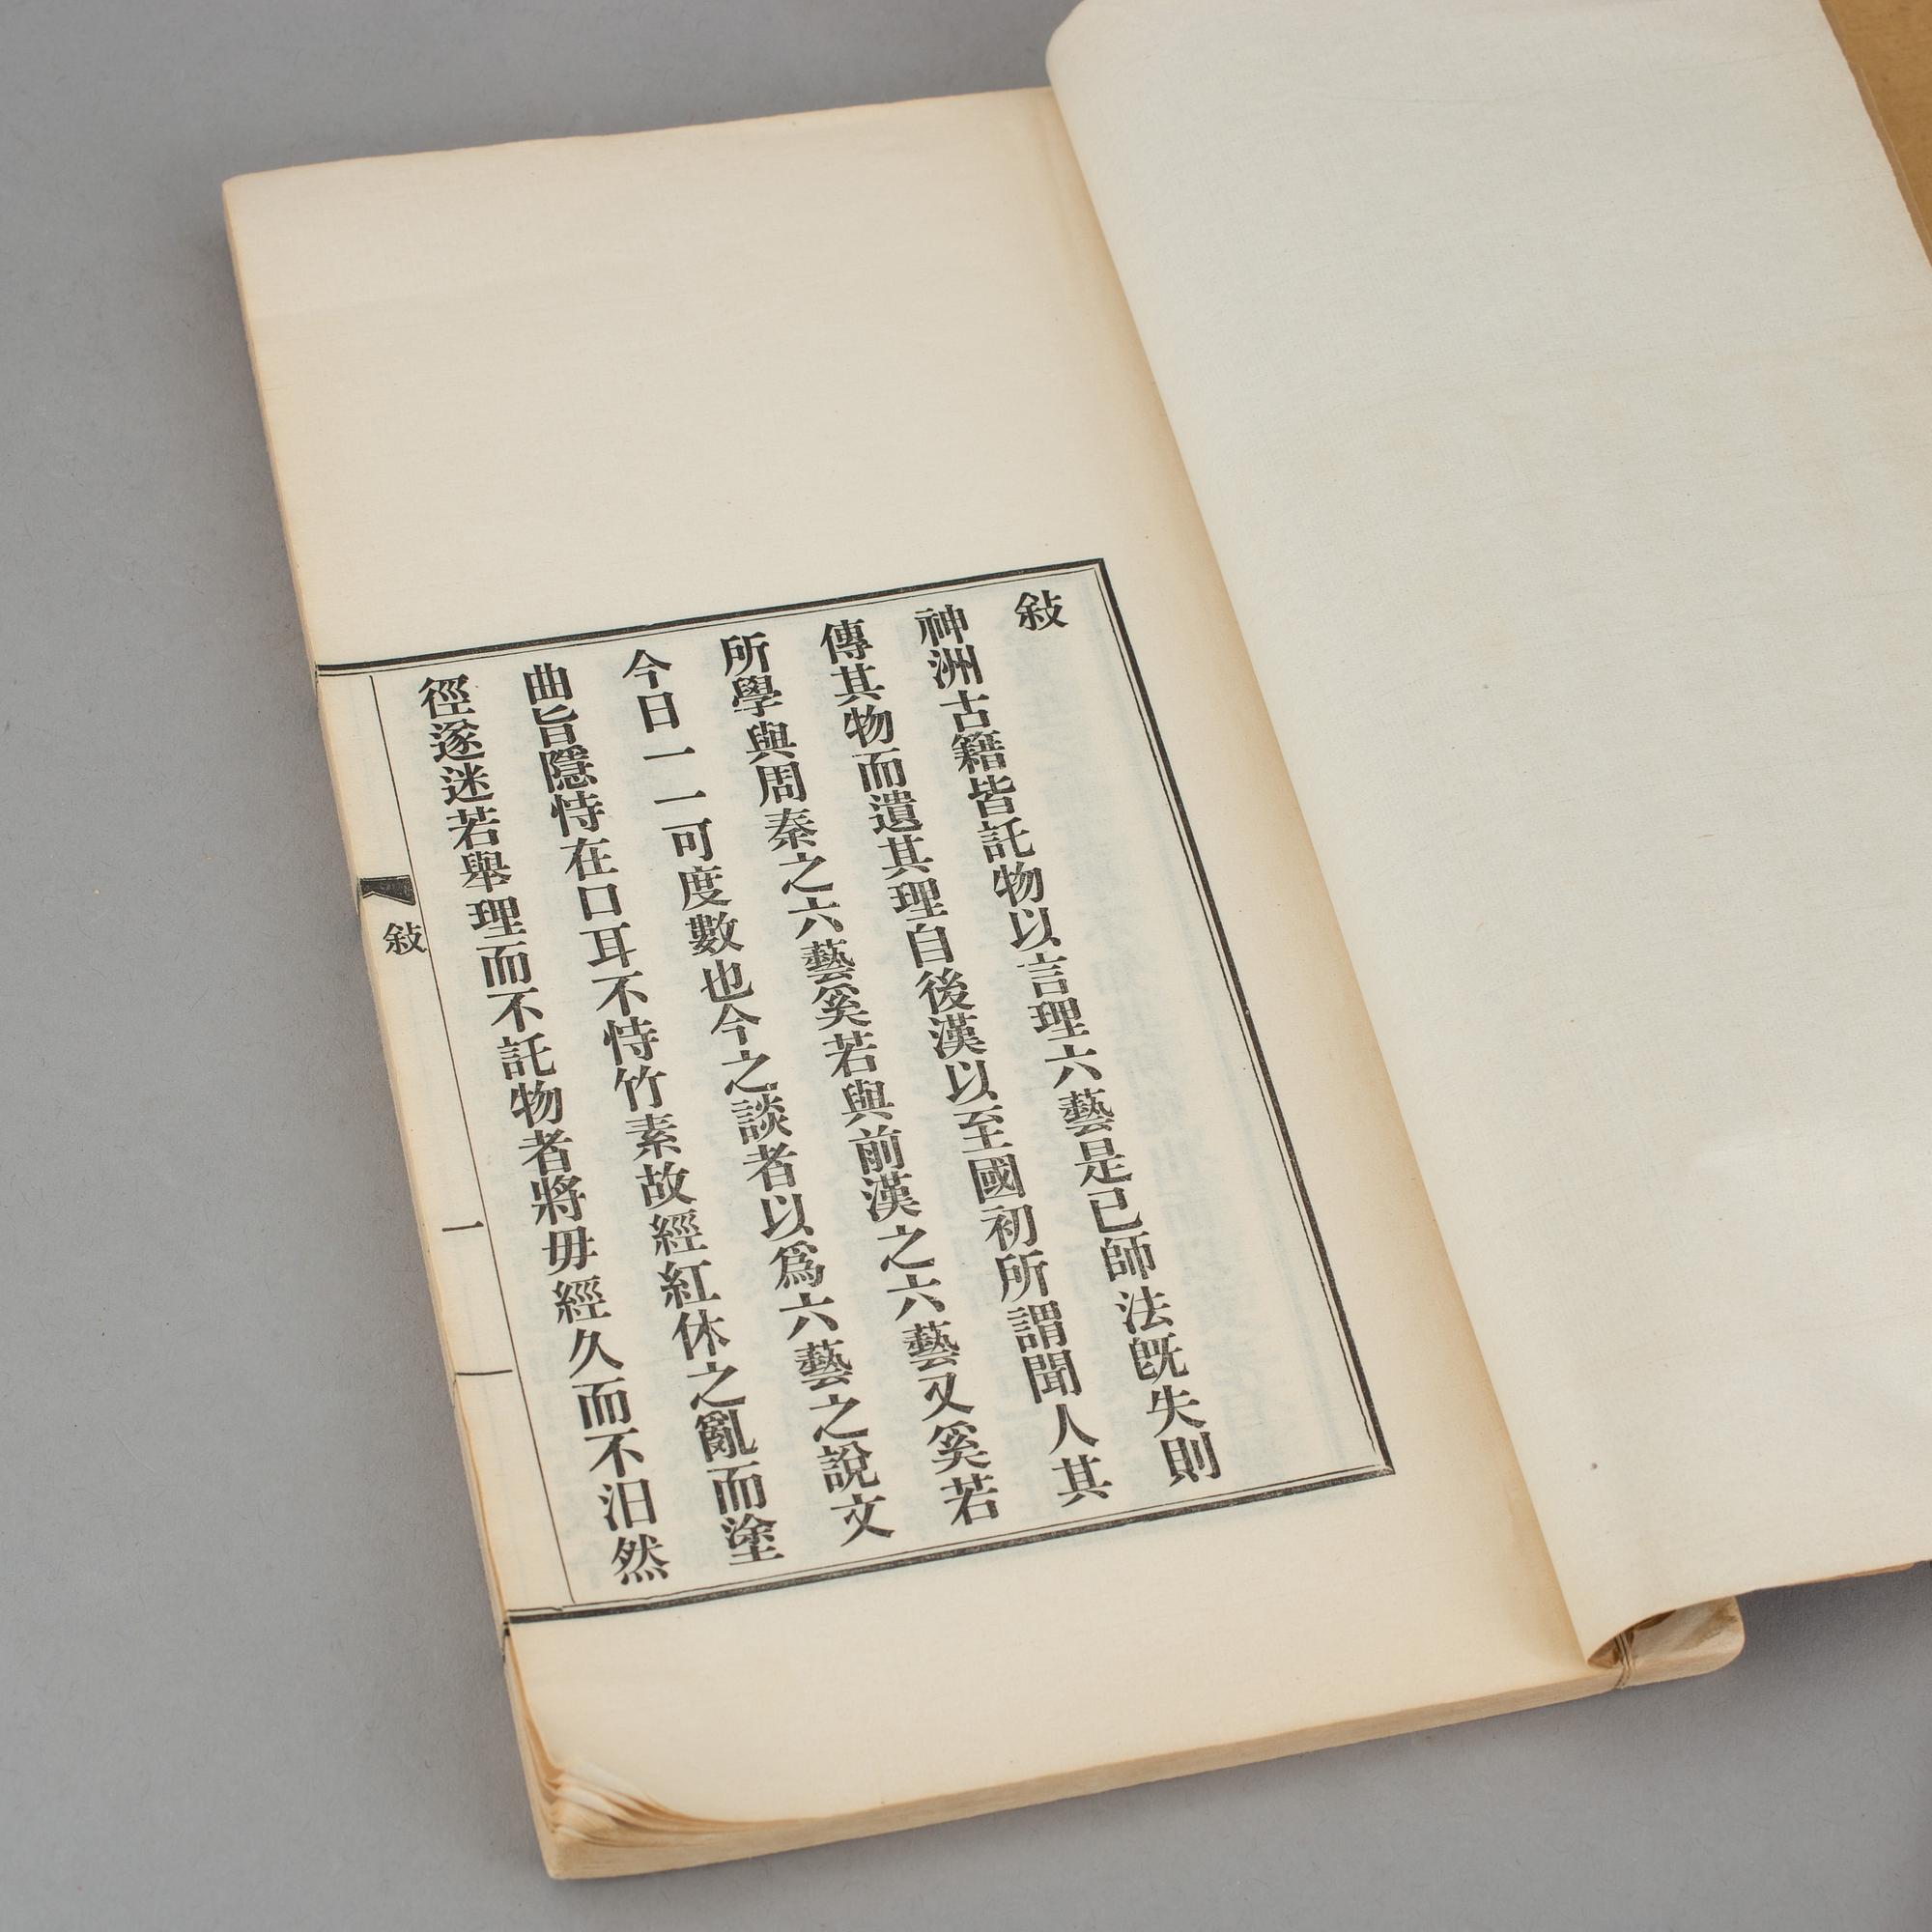 敍
神洲古籍皆託物以言理六藝是已師法旣失則
傳其物而遺其理自後漢以至國初所謂聞人其
所學與周秦之六藝奚若與前漢之六藝又奚若
今日一一可度數也今之談者以爲六藝之說文
曲旨隱恃在口耳不恃竹素故經紅休之亂而塗
徑遂迷若舉理而不託物者將毋經久而不汩然
敍
一